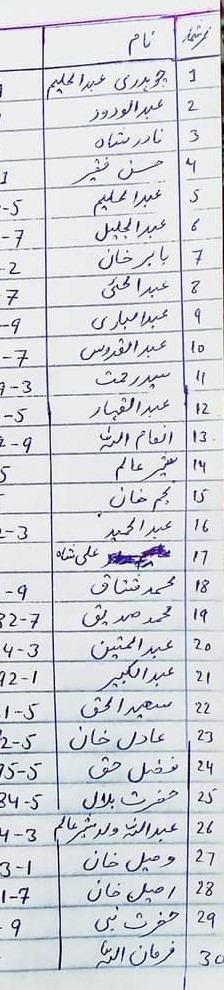 نمبر شمار نام
1 چوہدری عبدالحلیم
2 عبدالودود
3 نادر شاہ
4 حسن فقیر 1
5 عبدالحلیم -5
6 عبدالجلیل -7
7 بابر خان -2
8 عبدالحئی -7
9 عبدالباری -9
10 عبدالقدوس -7
11 سید رحمت 9-3
12 عبدالقہار -5
13 انعام اللہ 2-9
14 عالم 5
15 نجم خان
16 عبدالحمید 2-3
17 علی شاہ
18 محمد مشتاق -9
19 محمد صدیق 32-7
20 عبدالمتین 4-3
21 عبدالکبیر 92-1
22 سعید الحق 1-5
23 عادل خان 2-5
24 فضل حق 75-5
25 حضرت بلال 34-5
26 عبداللہ ولد شیر عالم 4-3
27 وصیل خان 3-1
28 رحیل خان 1-7
29 حضرت نبی -9
30 فرمان اللہ